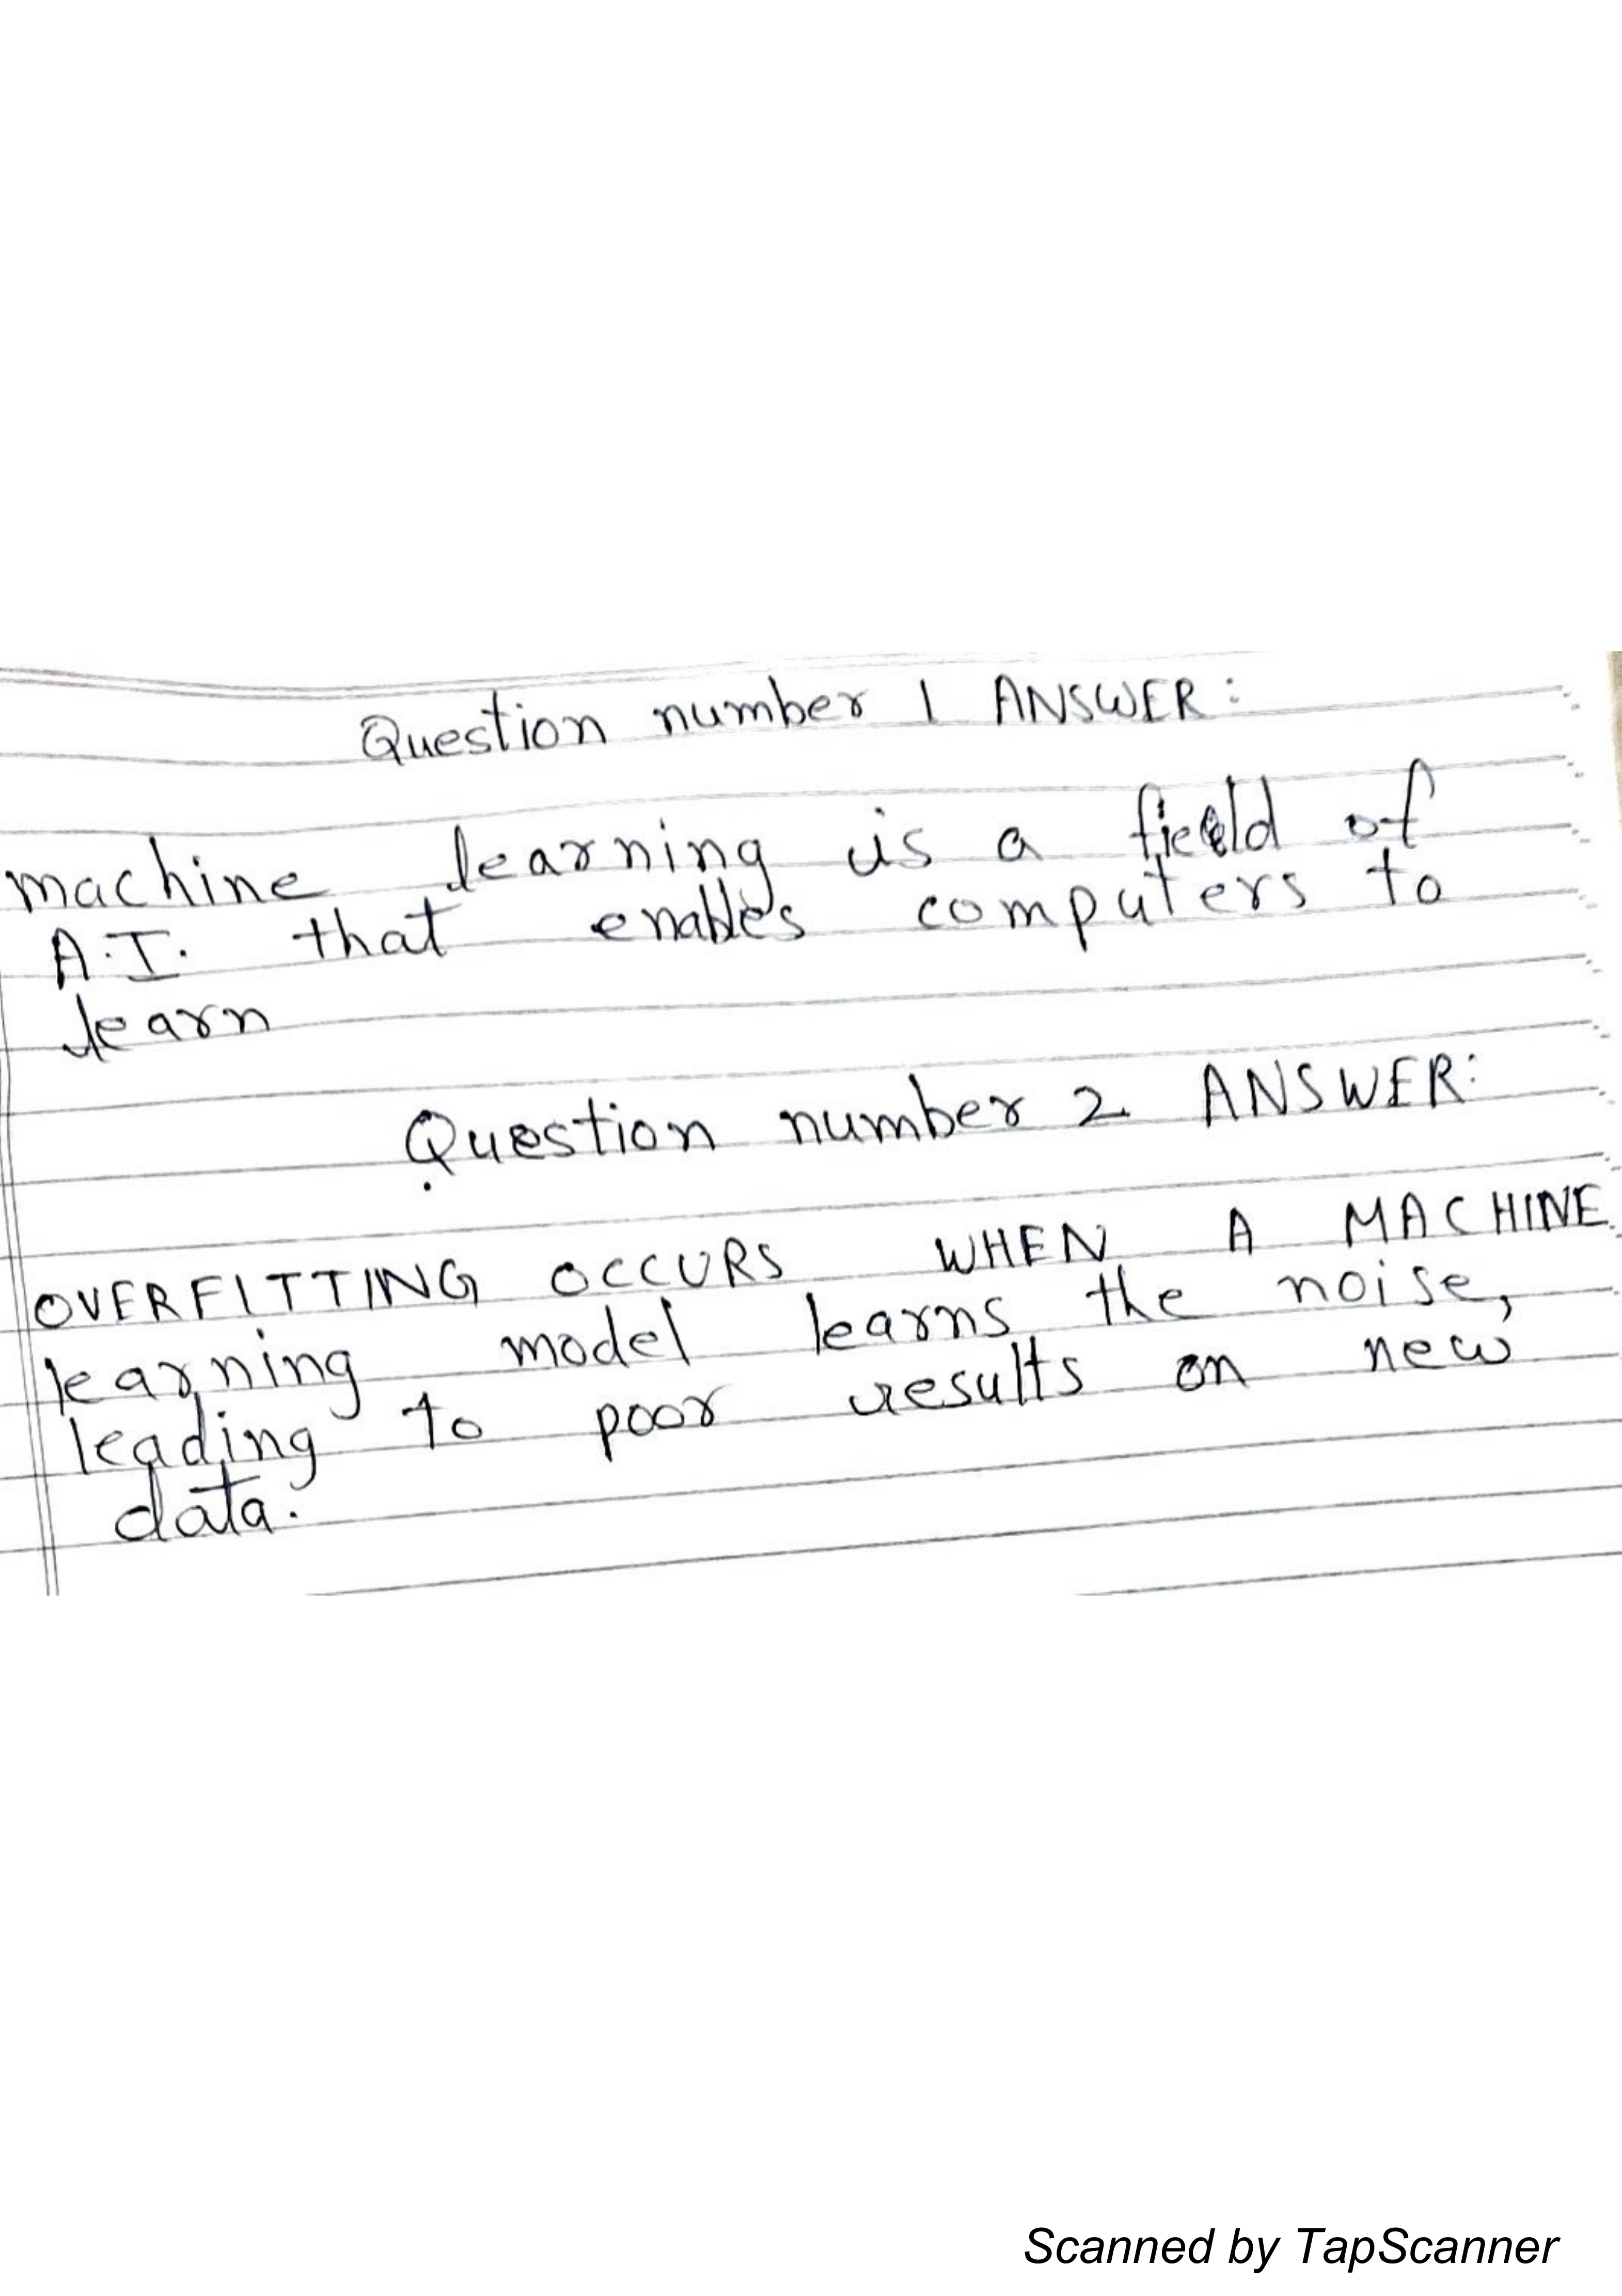 Question number 1 ANSWER:
machine learning is a field of
A.I. that enables computers to
learn
Question number 2 ANSWER:
OVERFITTING OCCURS WHEN A MACHINE
learning model learns the noise,
leading to poor results on new
data.
Scanned by TapScanner